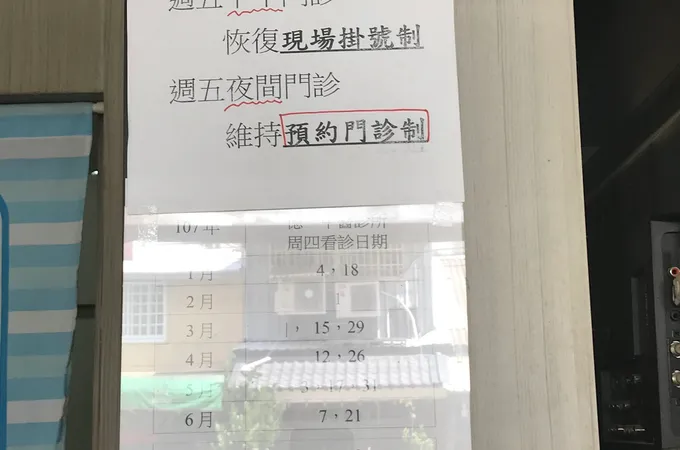 週五下午門診
恢復現場掛號制
週五夜間門診
維持預約門診制
107年
牙醫診所
周四看診日期
1月 4，18
2月 1
3月 15，29
4月 12，26
5月 3，17，31
6月 7，21